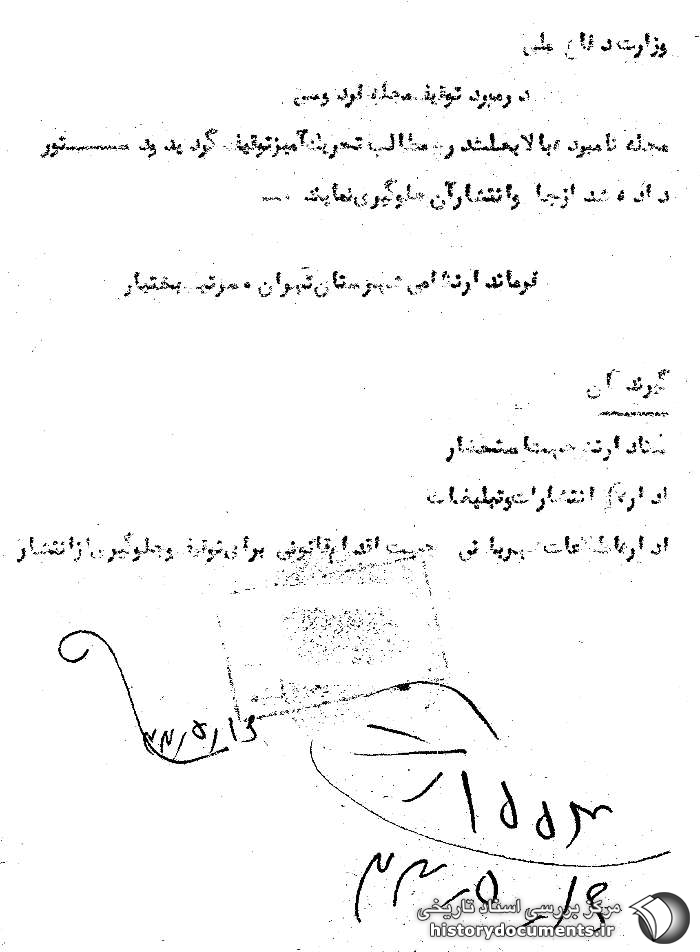 وزارت دفاع ملی
درمورد توقیف مجله فردوسی
مجله نامبرده بالا بعلت درج مطالب تحریک آمیز توقیف گردید و دستور
داده شد از چاپ و انتشار آن جلوگیری نمایند
فرماندار نظامی شهرستان تهران . سرتیپ بختیار
گیرندگان
ستاد ارتش جهت استحضار
اداره کل انتشارات و تبلیغات
اداره اطلاعات شهربانی جهت اقدام قانونی برای توقیف و جلوگیری از انتشار
۳۳٫۵٫۱۶
۳۳-۵-۱۶
مرکز بررسی اسناد تاریخی
historydocuments.ir